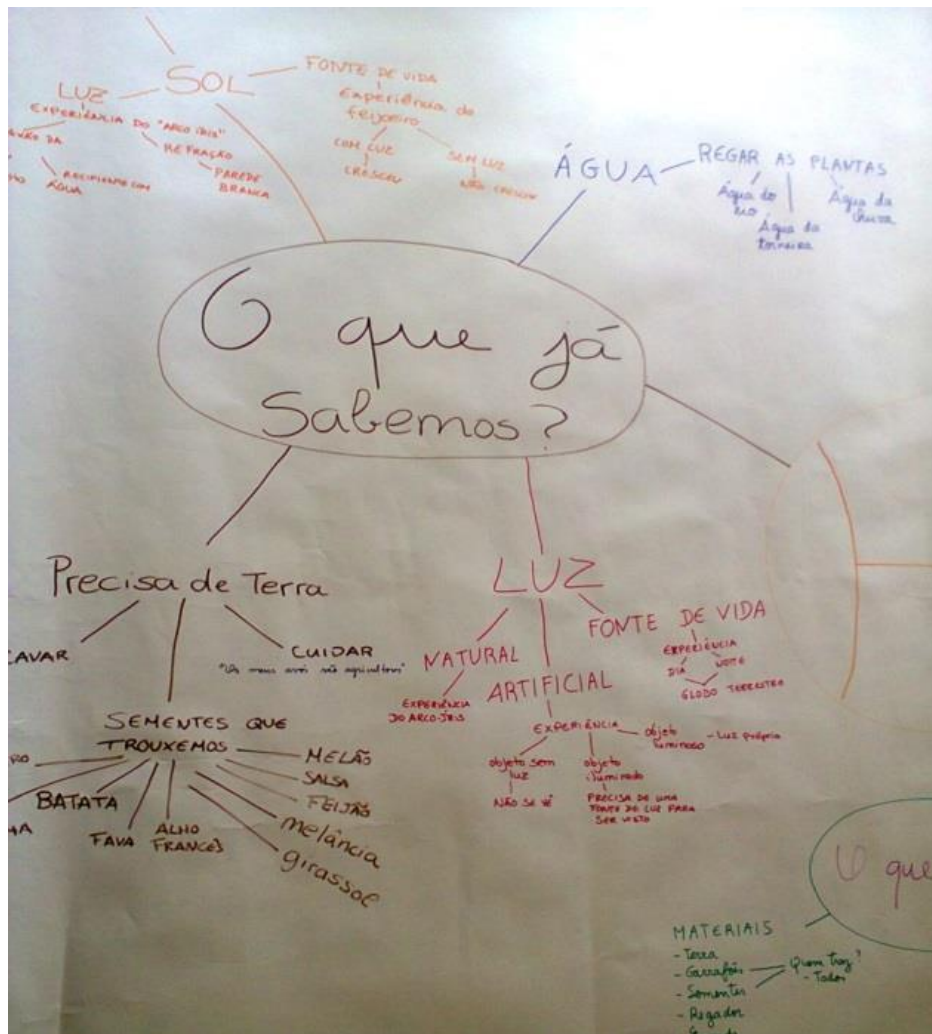 SOL
FONTE DE VIDA
Experiência do
feijoeiro
COM LUZ
CRESCEU
SEM LUZ
NÃO CRESCEU
LUZ
EXPERIÊNCIA DO "ARCO ÍRIS"
REFRAÇÃO
PAREDE
BRANCA
RECIPIENTE COM
ÁGUA
ÁGUA
REGAR AS PLANTAS
Água do
rio
Água da
torneira
Água da
chuva
O que já
Sabemos?
Precisa de Terra
CAVAR
CUIDAR
"Os meus avós são agricultores"
SEMENTES QUE
TROUXEMOS
BATATA
FAVA
ALHO
FRANCÊS
MELÃO
SALSA
FEIJÃO
melância
girassol
LUZ
NATURAL
EXPERIÊNCIA
DO ARCO-ÍRIS
ARTIFICIAL
EXPERIÊNCIA
objeto sem
luz
NÃO SE VÊ
objeto
iluminado
PRECISA DE UMA
FONTE DE LUZ PARA
SER VISTO
objeto
luminoso
- Luz própria
FONTE DE VIDA
EXPERIÊNCIA
DIA
NOITE
GLOBO TERRESTRE
O que
MATERIAIS
- Terra
- Garrafões
- Sementes
- Regador
Quem traz?
- Todos